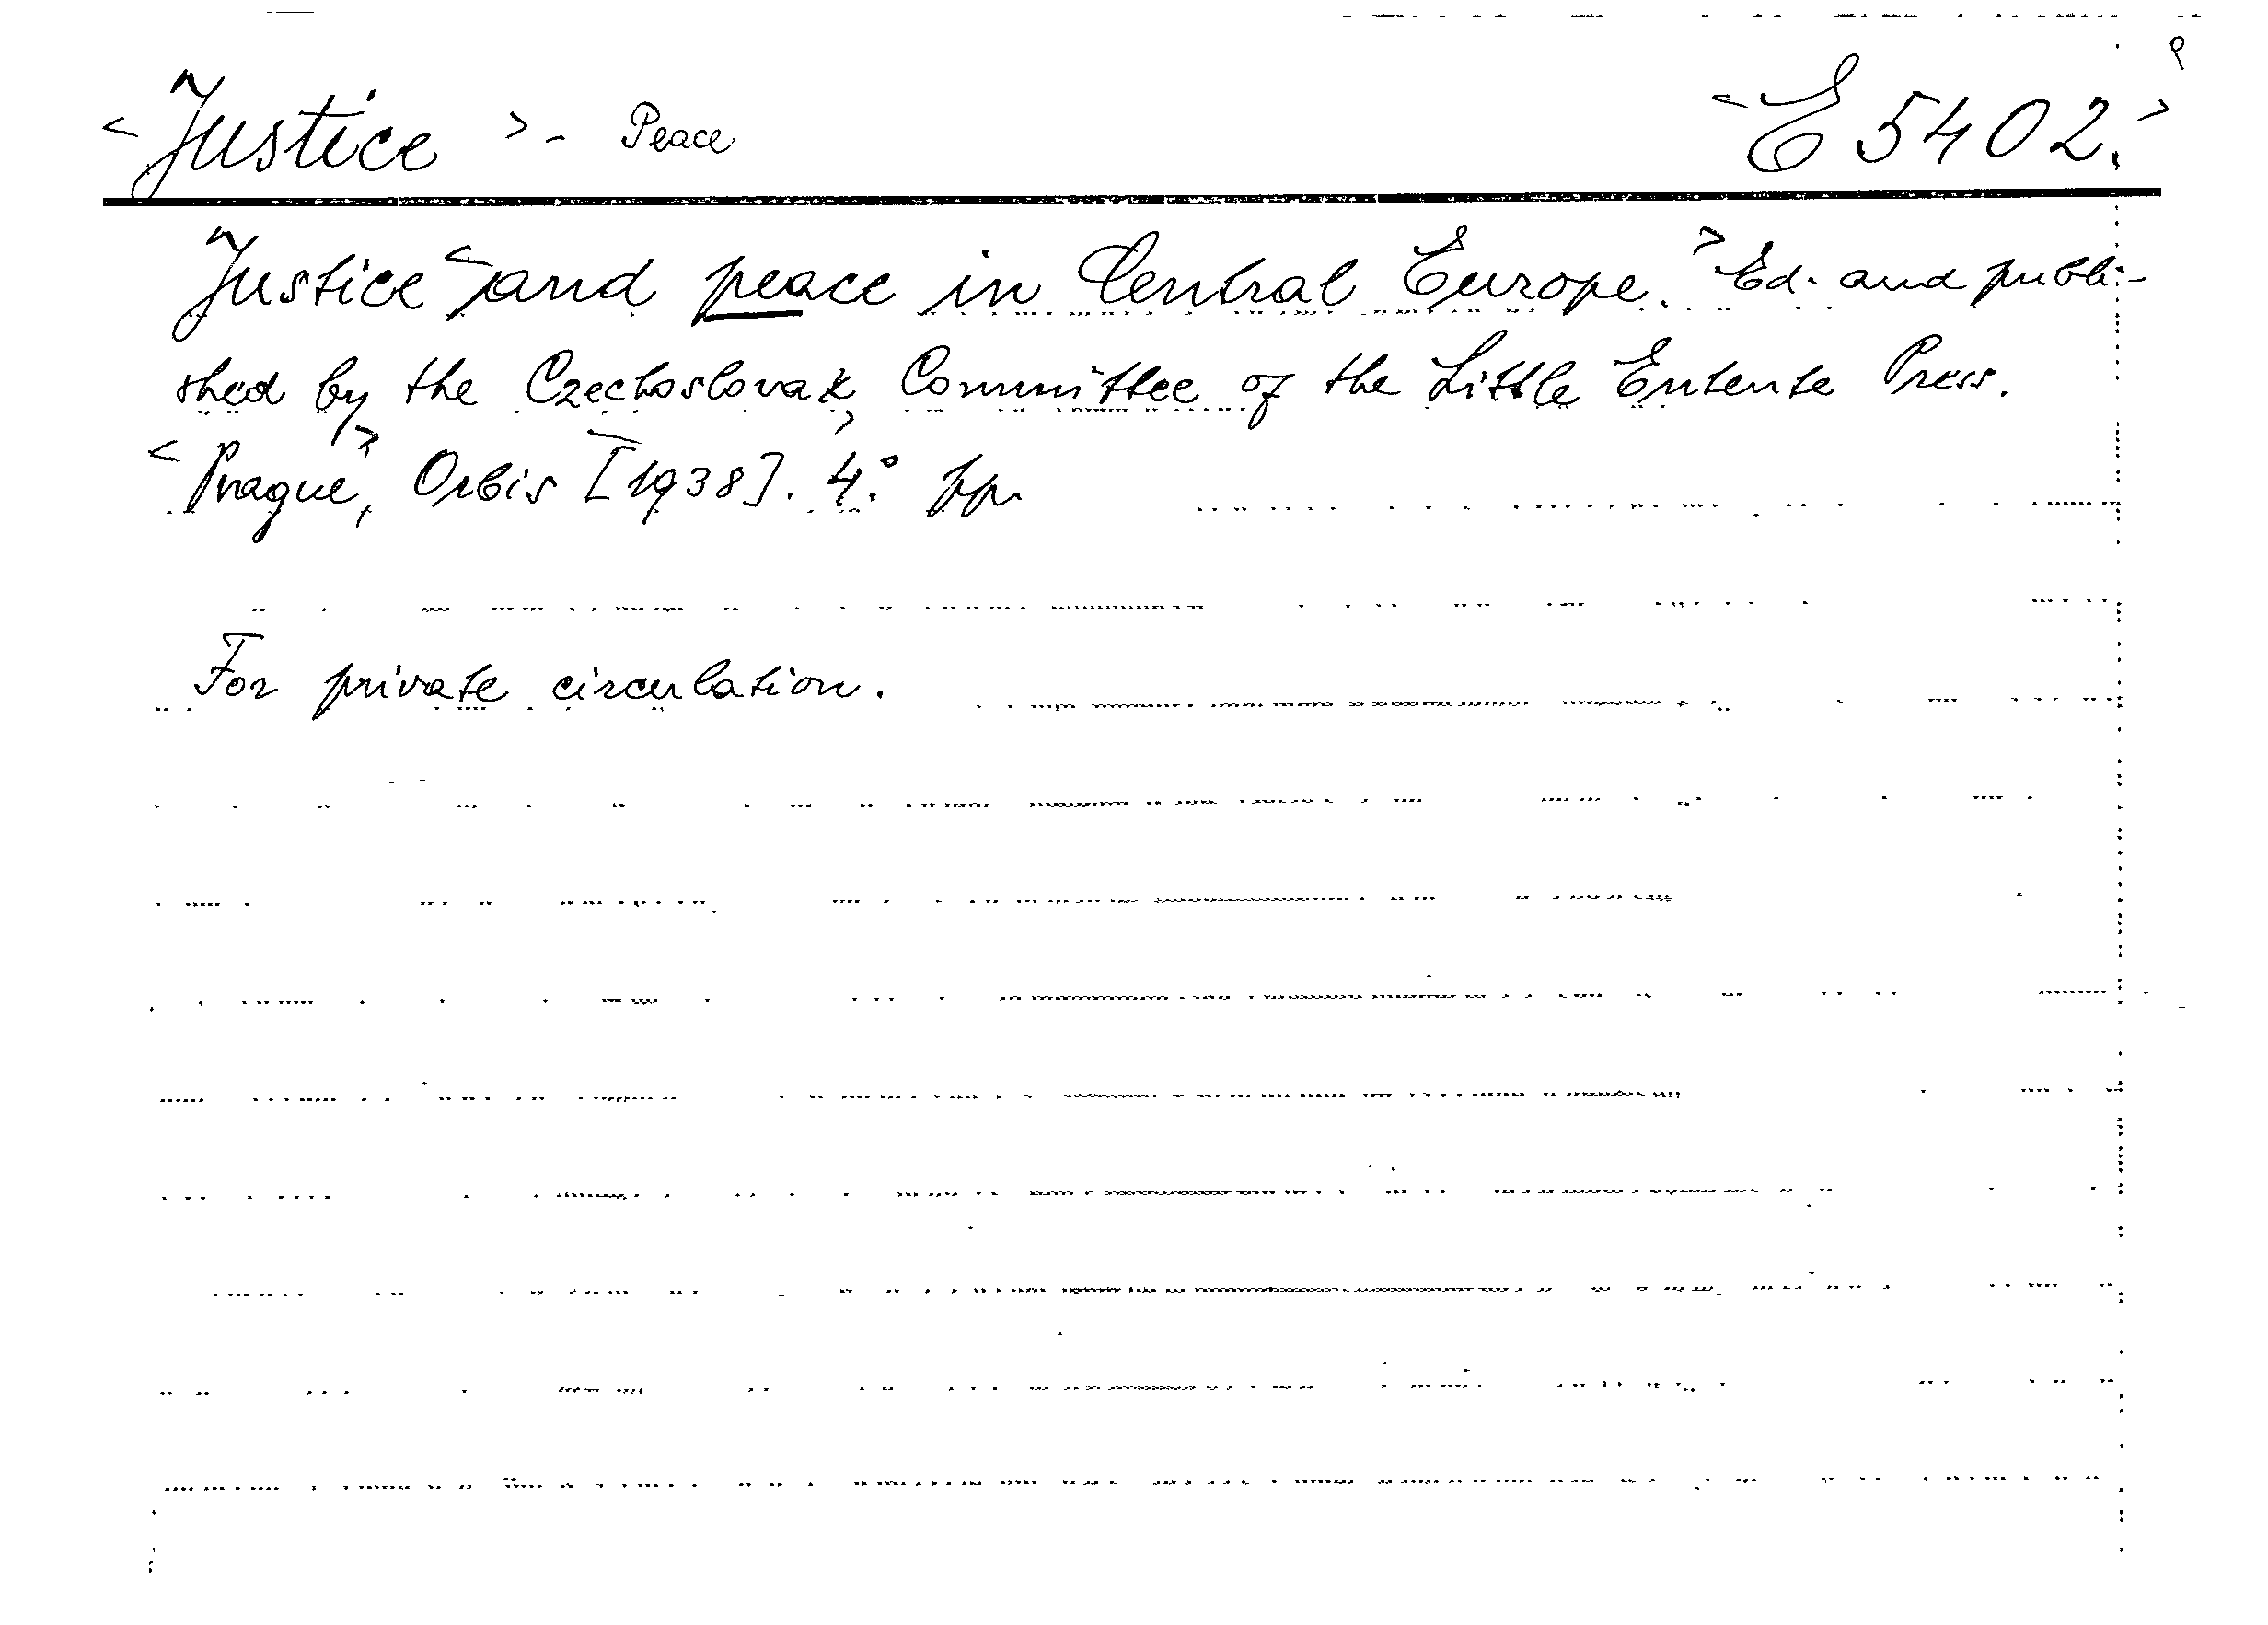 <Justice> - Peace <E 5402.>
Justice <and peace in Central Europe.> Ed. and publi-
shed by the Czechoslovak Committee of the Little Entente Press.
<Prague>, Orbis [1938]. 4.° pp.
For private circulation.